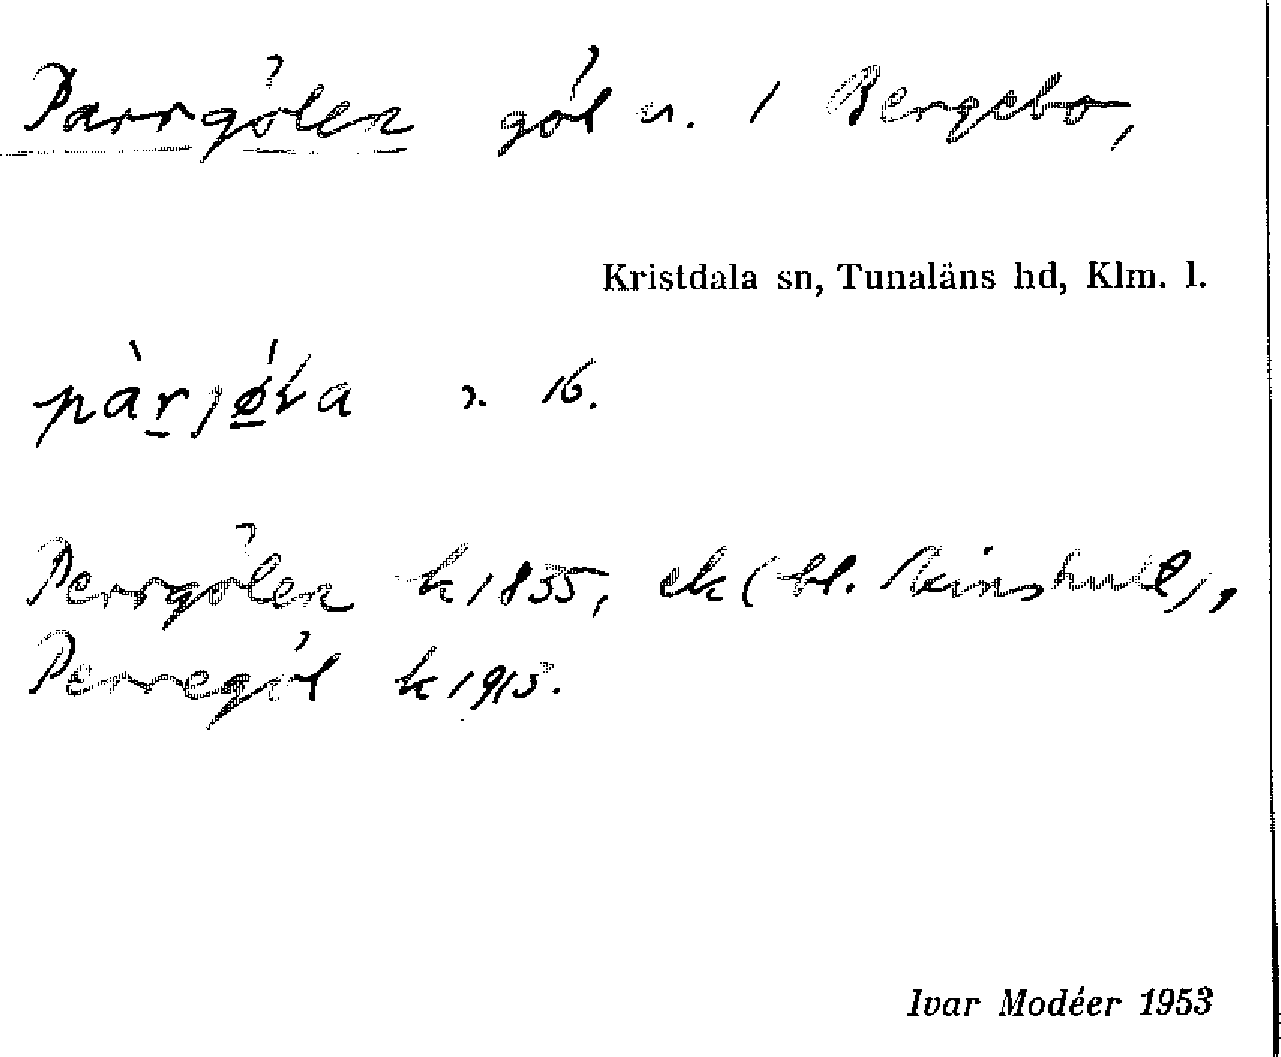 Parrgölen göl n. / Bergebo,
Kristdala sn, Tunaläns hd, Klm. l.
16.
Perrgölen k 1855, ek (bl. Krinshult),
Perregöl k 1915.
Ivar Modéer 1953